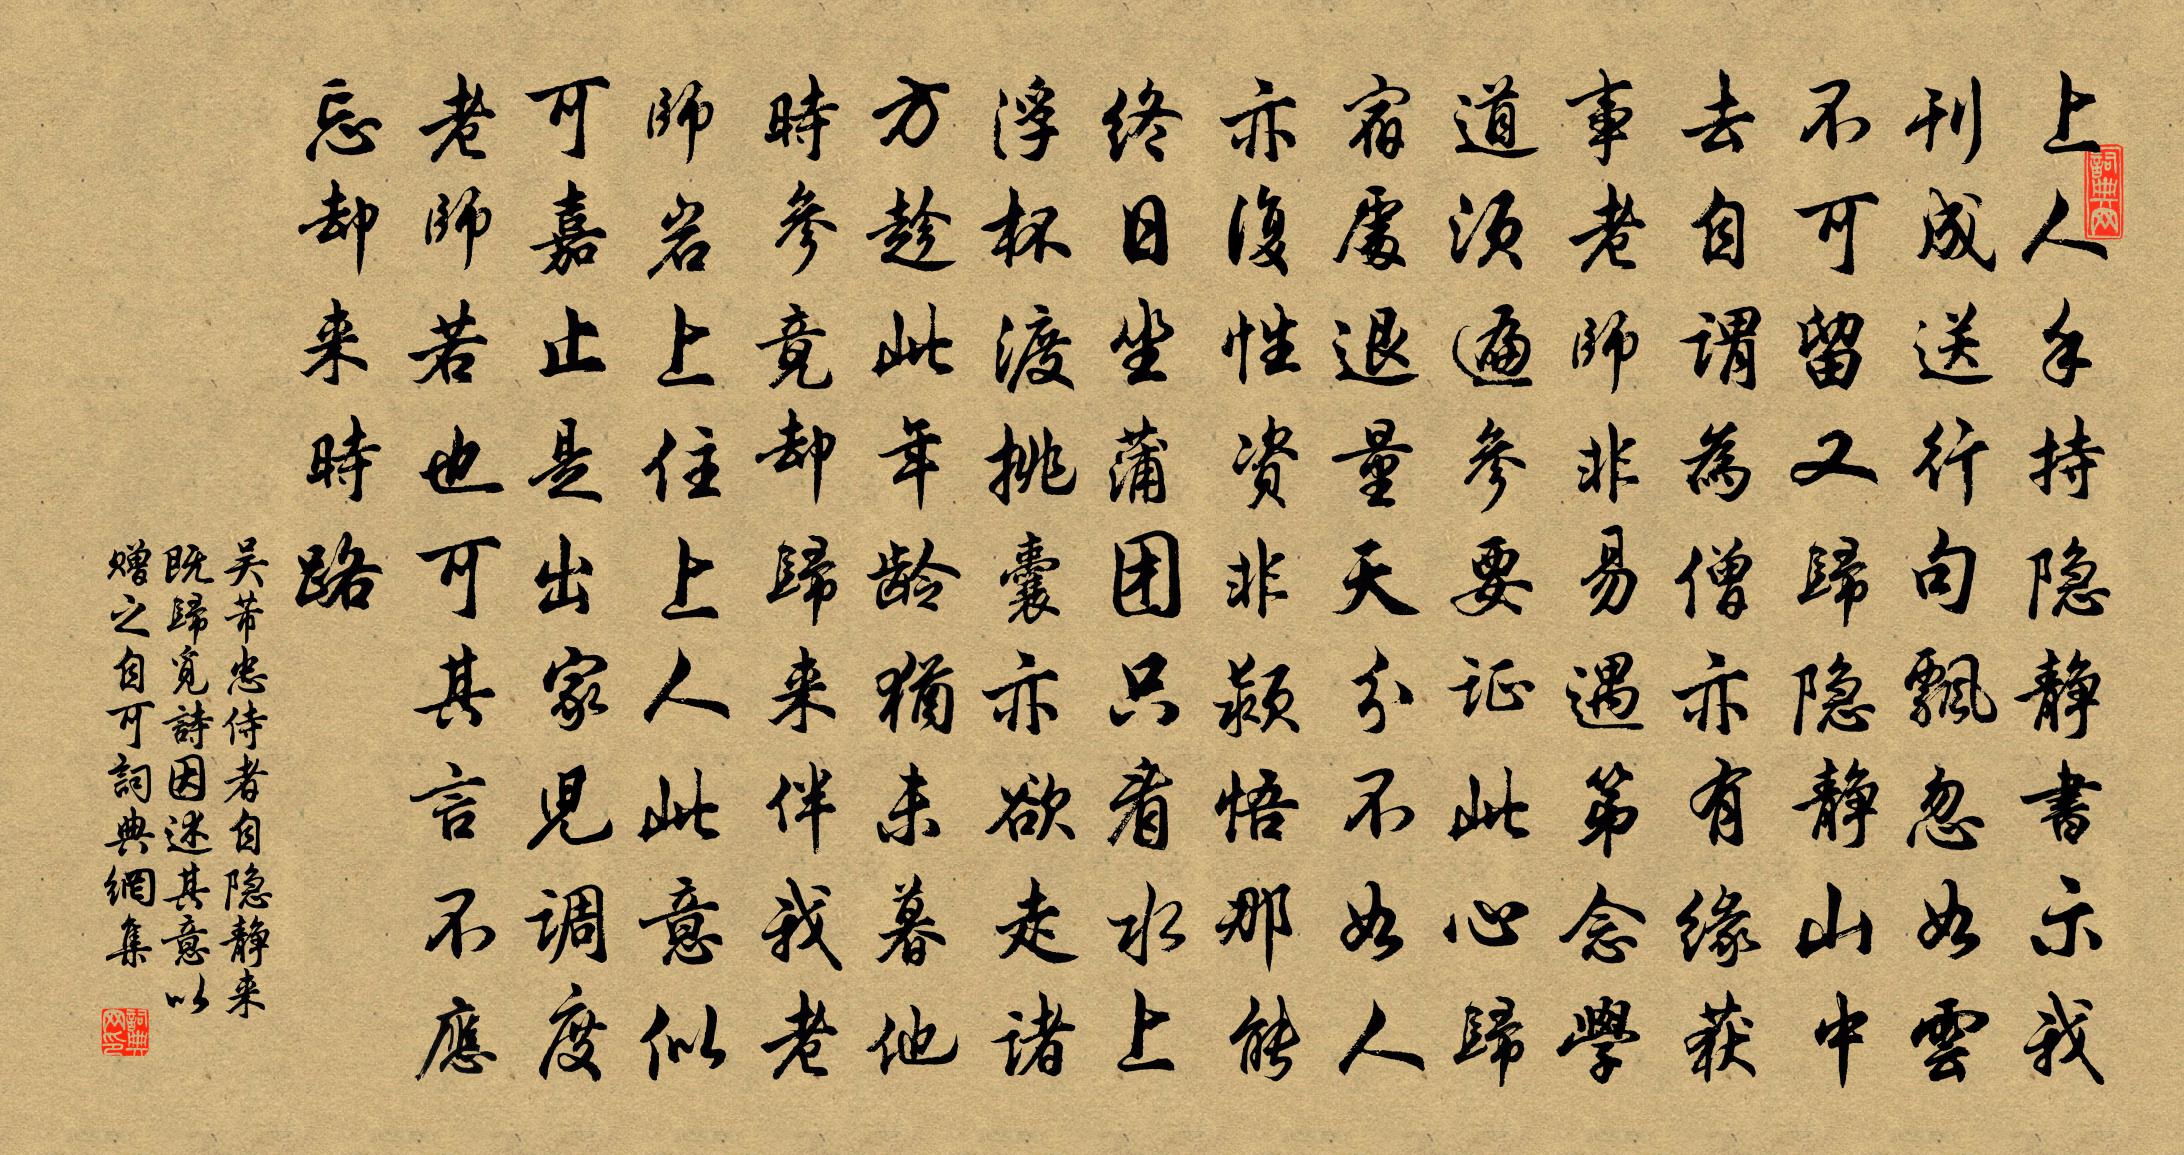 上人手持隐静書示我
刊成送行句飄忽如雲
不可留又歸隐静山中
去自谓為僧亦有缘获
事老师非易遇第念學
道须遍参要证此心歸
宿處退量天分不如人
亦復性资非颖悟那能
终日坐蒲团只看水上
浮杯渡挑囊亦欲走诸
方趁此年龄猶未暮他
時参竟却歸来伴我老
師岩上住上人此意似
可嘉止是出家児调度
老师若也可其言不應
忘却来時路
吴芾忠侍者自隐静来
既歸覓詩因述其意以
赠之自可詞典網集
詞典网
詞典网印